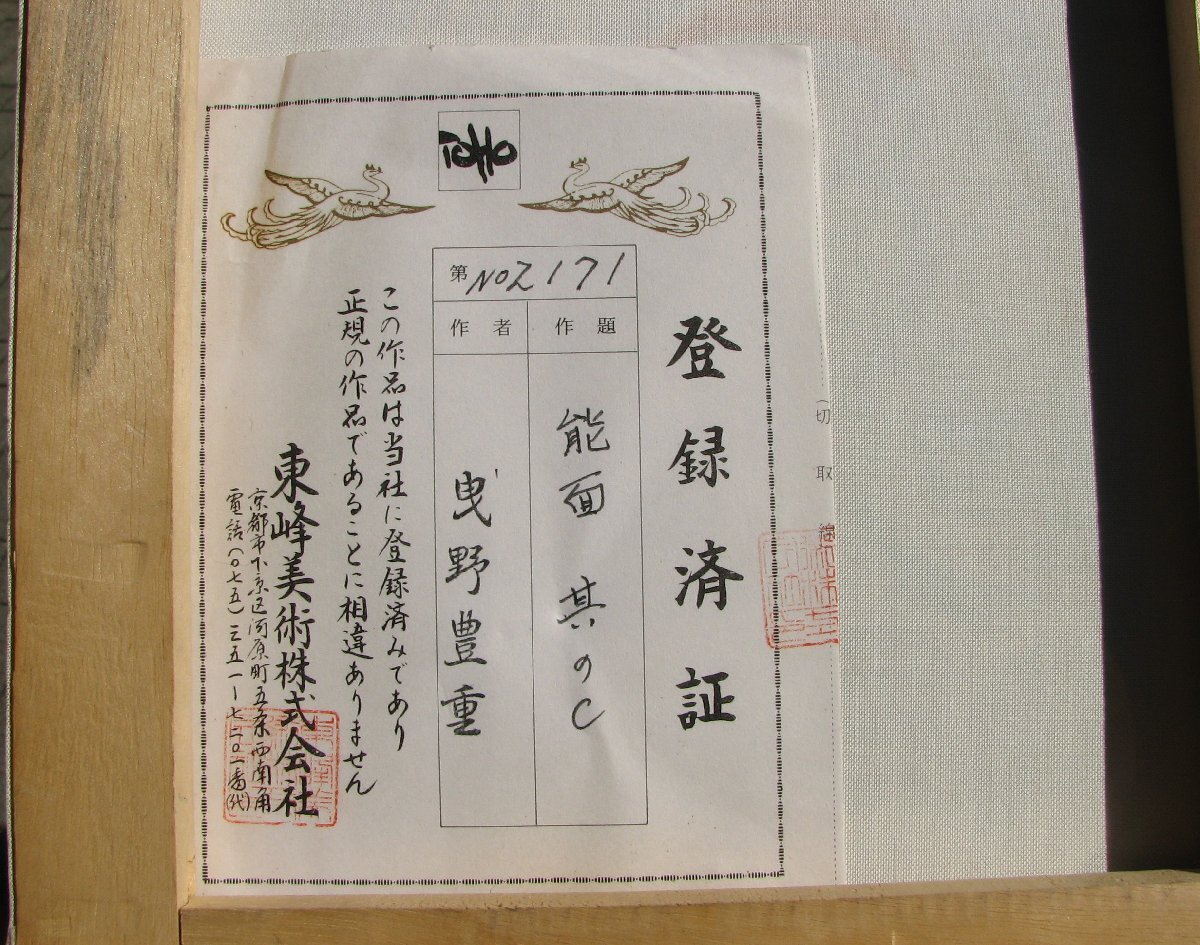 TOHO
登録済証
第 No 2171
作題
能面 其のC
作者
曵野豊重
この作品は当社に登録済みであり
正規の作品であることに相違ありません
東峰美術株式会社
京都市下京区河原町五条西南角
電話(〇七五)三五一-七二〇一番(代)
(切取